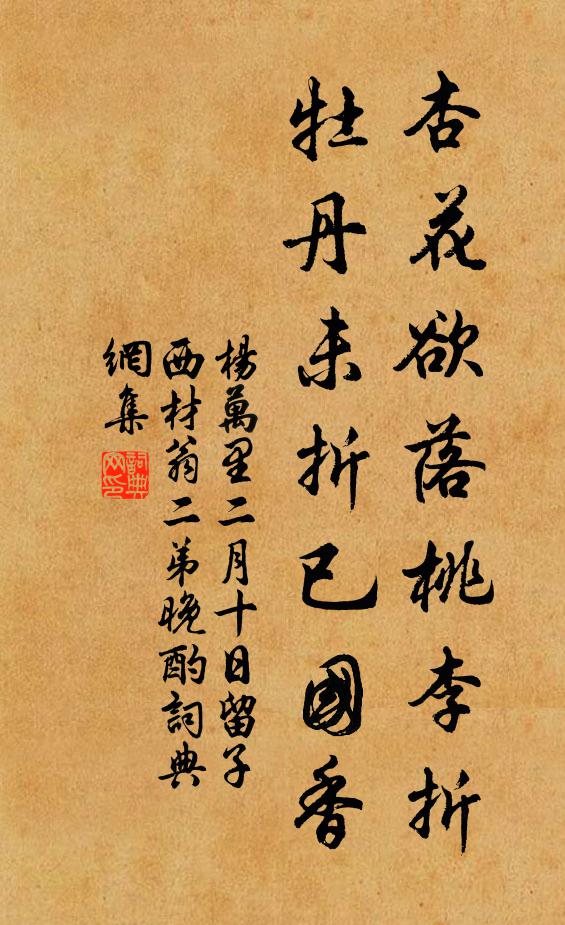 杏花欲落桃李折
牡丹未折已國香
楊萬里二月十日留子
西材翁二弟晚酌詞典
網集
詞典
网印